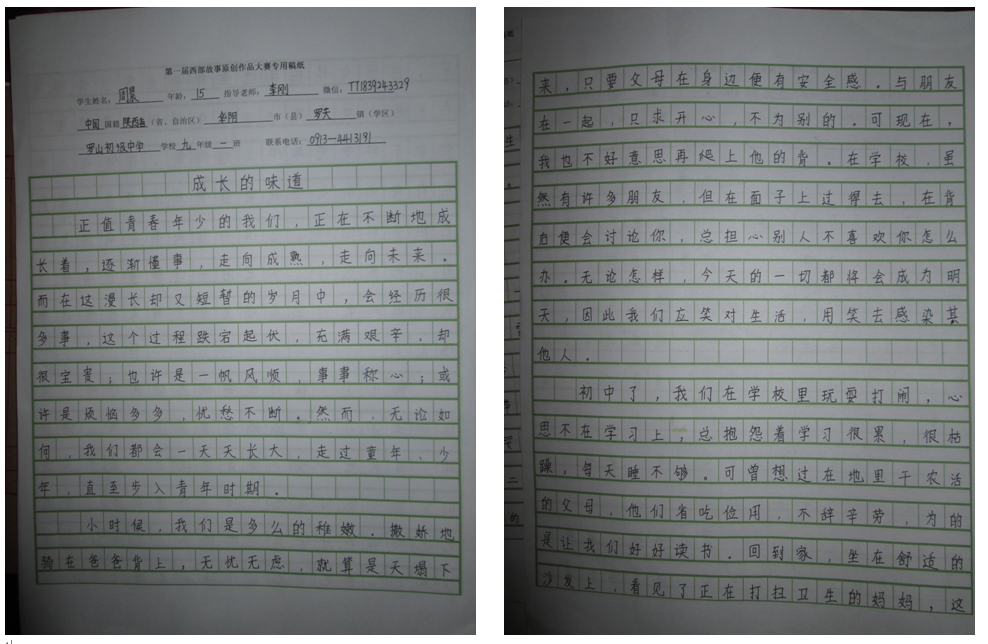 第一届西部故事原创作品大赛专用稿纸
学生姓名：周晨 年龄：15 指导老师：李刚 微信：TT1839243329
中国国籍 陕西省（省、自治区） 华阴 市（县） 罗夫 镇（学区）
罗山初级中学 学校 九 年级 一 班 联系电话：0913—4413191
成长的味道
正值青春年少的我们，正在不断地成
长着，逐渐懂事，走向成熟，走向未来。
而在这漫长却又短暂的岁月中，会经历很
多事，这个过程跌宕起伏，充满艰辛，却
很宝贵；也许是一帆风顺，事事称心；或
许是烦恼多多，忧愁不断。然而，无论如
何，我们都会一天天长大，走过童年、少
年，直至步入青年时期。
小时候，我们是多么的稚嫩。撒娇地
骑在爸爸背上，无忧无虑，就算是天塌下
来，只要父母在身边便有安全感。与朋友
在一起，只求开心，不为别的。可现在，
我也不好意思再爬上他的背。在学校，虽
然有许多朋友，但在面子上过得去，在背
自便会讨论你，总担心别人不喜欢你怎么
办。无论怎样，今天的一切都将会成为明
天，因此我们应笑对生活，用笑去感染其
他人。
初中了，我们在学校里玩耍打闹，心
思不在学习上，总抱怨着学习很累，很枯
躁，每天睡不够。可曾想过在地里干农活
的父母，他们省吃俭用，不辞辛劳，为的
是让我们好好读书。回到家，坐在舒适的
沙发上，看见了正在打扫卫生的妈妈，这